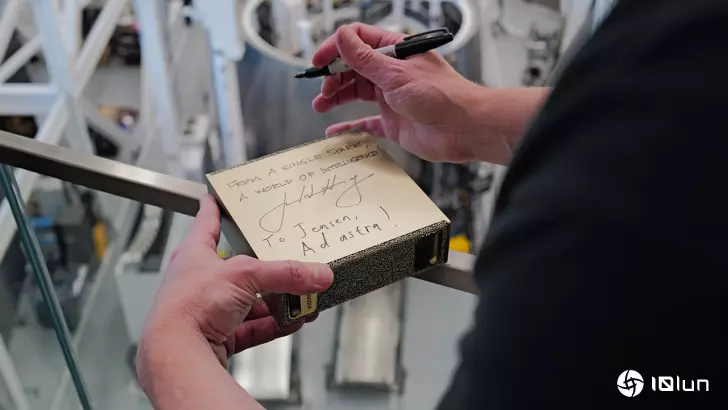 FROM A SINGLE SPARK,
A WORLD OF INTELLIGENCE!
To Jensen,
Ad astra!
10lun